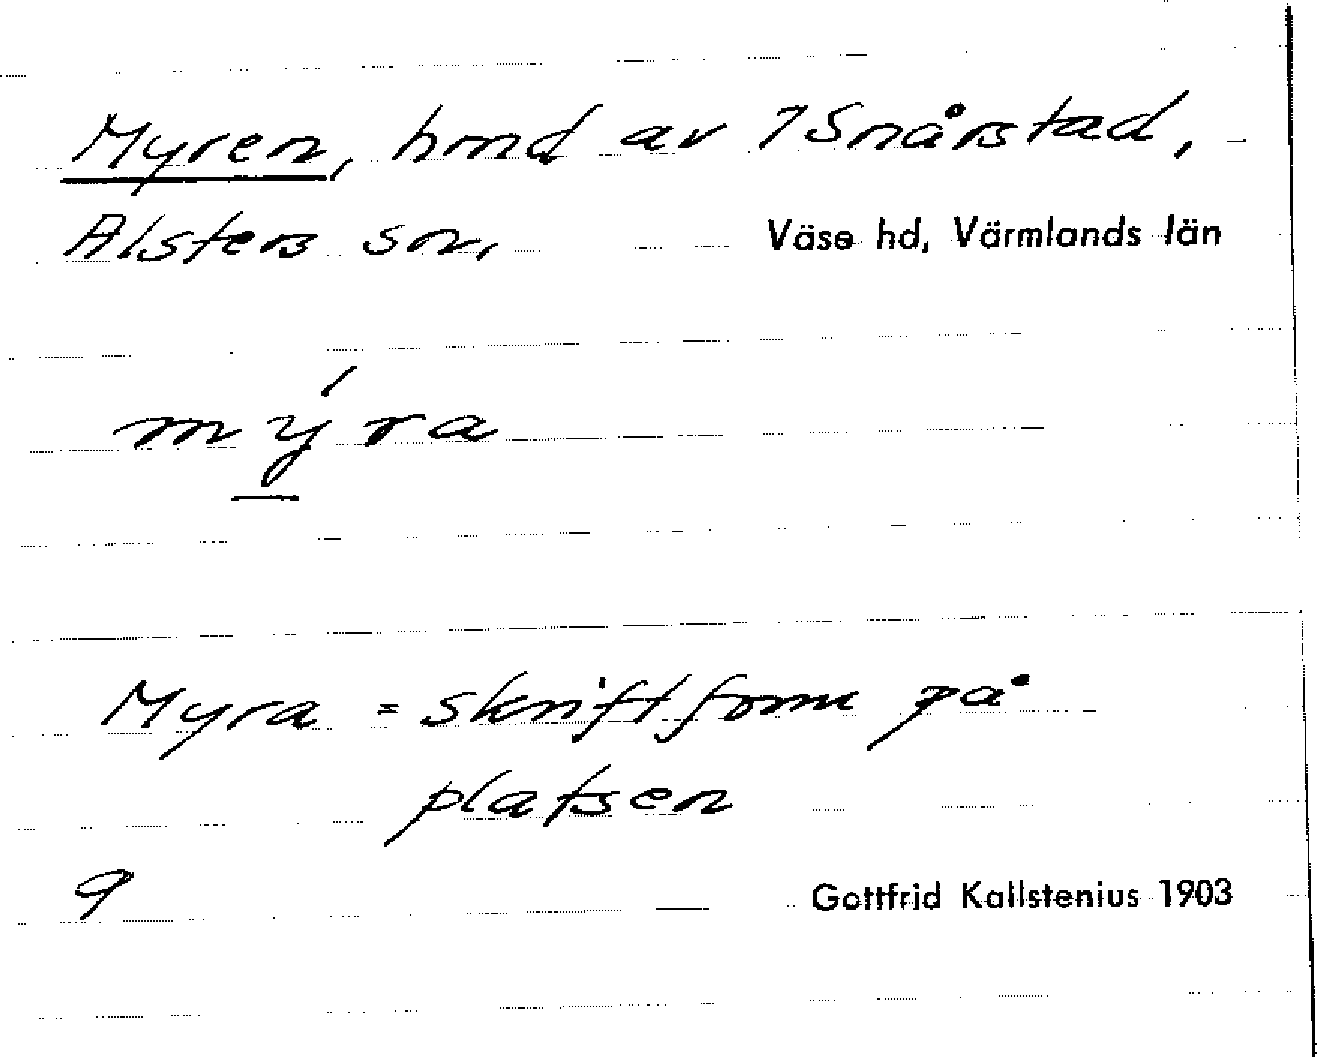 Myren, hmd av 7 Snårstad,
Alsters sn, Väse hd, Värmlands län
mýra
Myra = skriftform på
platsen
9 Gottfrid Kallstenius 1903